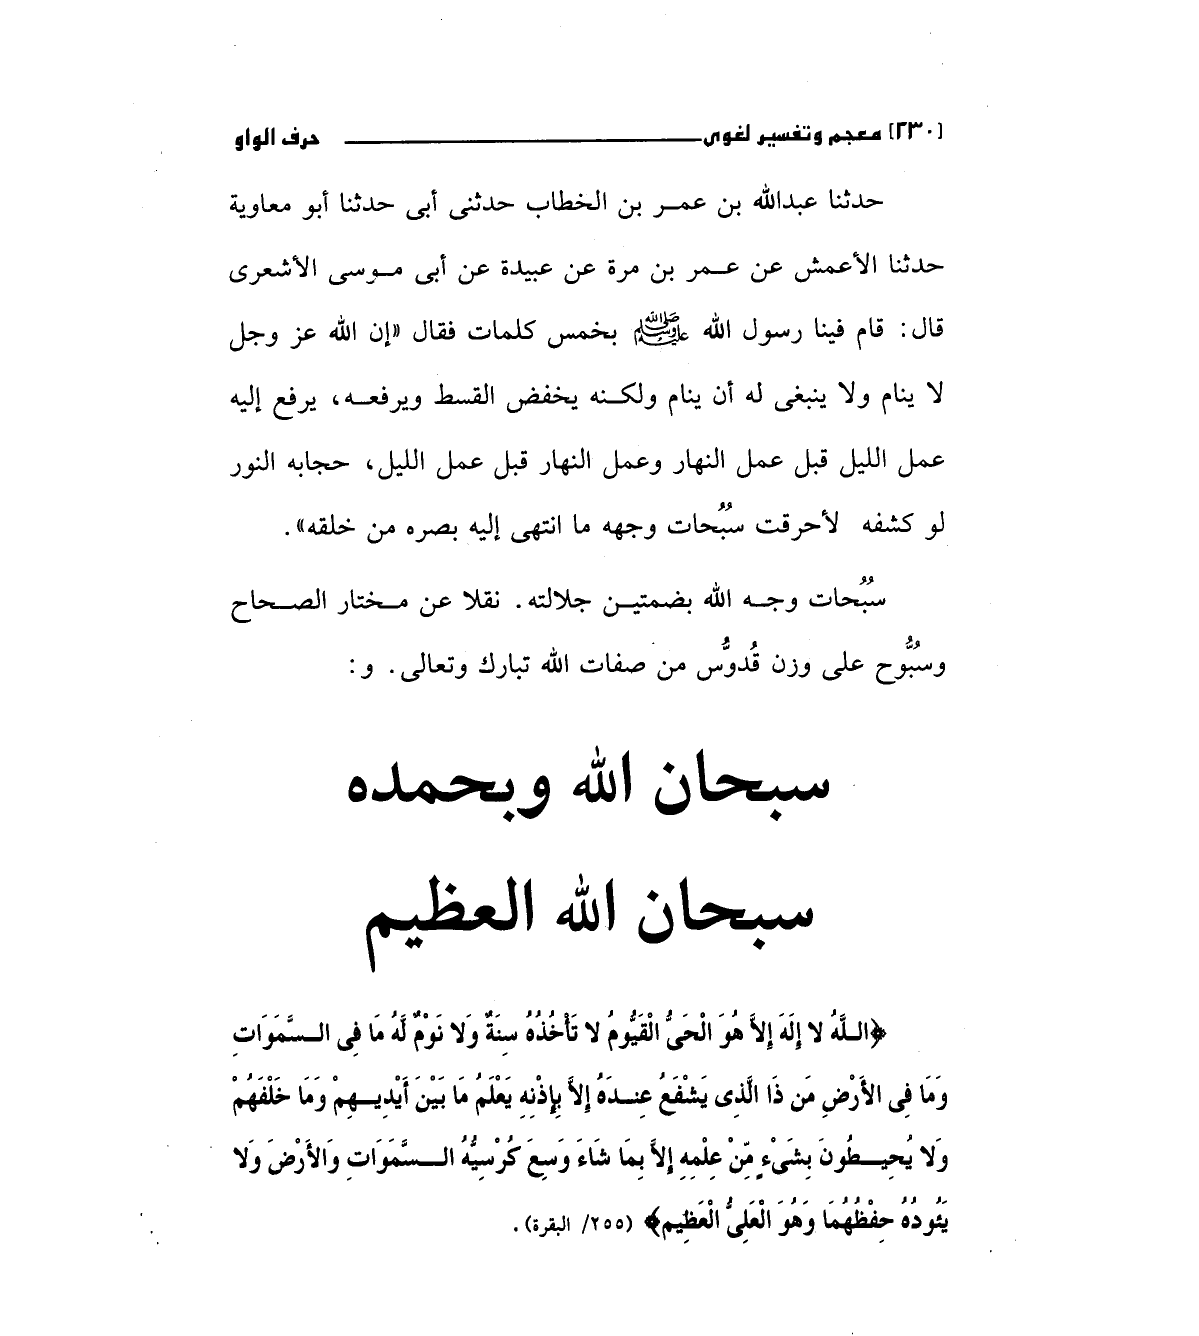 [٢٣٠] معجم وتفسير لغوى حرف الواو
حدثنا عبدالله بن عمر بن الخطاب حدثنى أبى حدثنا أبو معاوية
حدثنا الأعمش عن عمر بن مرة عن عبيدة عن أبى موسى الأشعرى
قال: قام فينا رسول الله ﷺ بخمس كلمات فقال «إن الله عز وجل
لا ينام ولا ينبغى له أن ينام ولكنه يخفض القسط ويرفعه، يرفع إليه
عمل الليل قبل عمل النهار وعمل النهار قبل عمل الليل، حجابه النور
لو كشفه لأحرقت سُبُحات وجهه ما انتهى إليه بصره من خلقه».
سُبُحات وجه الله بضمتين جلالته. نقلا عن مختار الصحاح
وسُبُّوح على وزن قُدوُّس من صفات الله تبارك وتعالى. و:
سبحان الله وبحمده
سبحان الله العظيم
﴿اللَّهُ لا إِلَهَ إِلاَّ هُوَ الْحَىُّ الْقَيُّومُ لا تَأْخُذُهُ سِنَةٌ وَلا نَوْمٌ لَّهُ مَا فِى السَّمَوَاتِ
وَمَا فِى الأَرْضِ مَن ذَا الَّذِى يَشْفَعُ عِندَهُ إِلاَّ بِإِذْنِهِ يَعْلَمُ مَا بَيْنَ أَيْدِيهِمْ وَمَا خَلْفَهُمْ
وَلا يُحِيطُونَ بِشَىْءٍ مِّنْ عِلْمِهِ إِلاَّ بِمَا شَاءَ وَسِعَ كُرْسِيُّهُ السَّمَوَاتِ وَالأَرْضَ وَلا
يَئُودُهُ حِفْظُهُمَا وَهُوَ الْعَلِىُّ الْعَظِيم﴾ (٢٥٥/ البقرة).